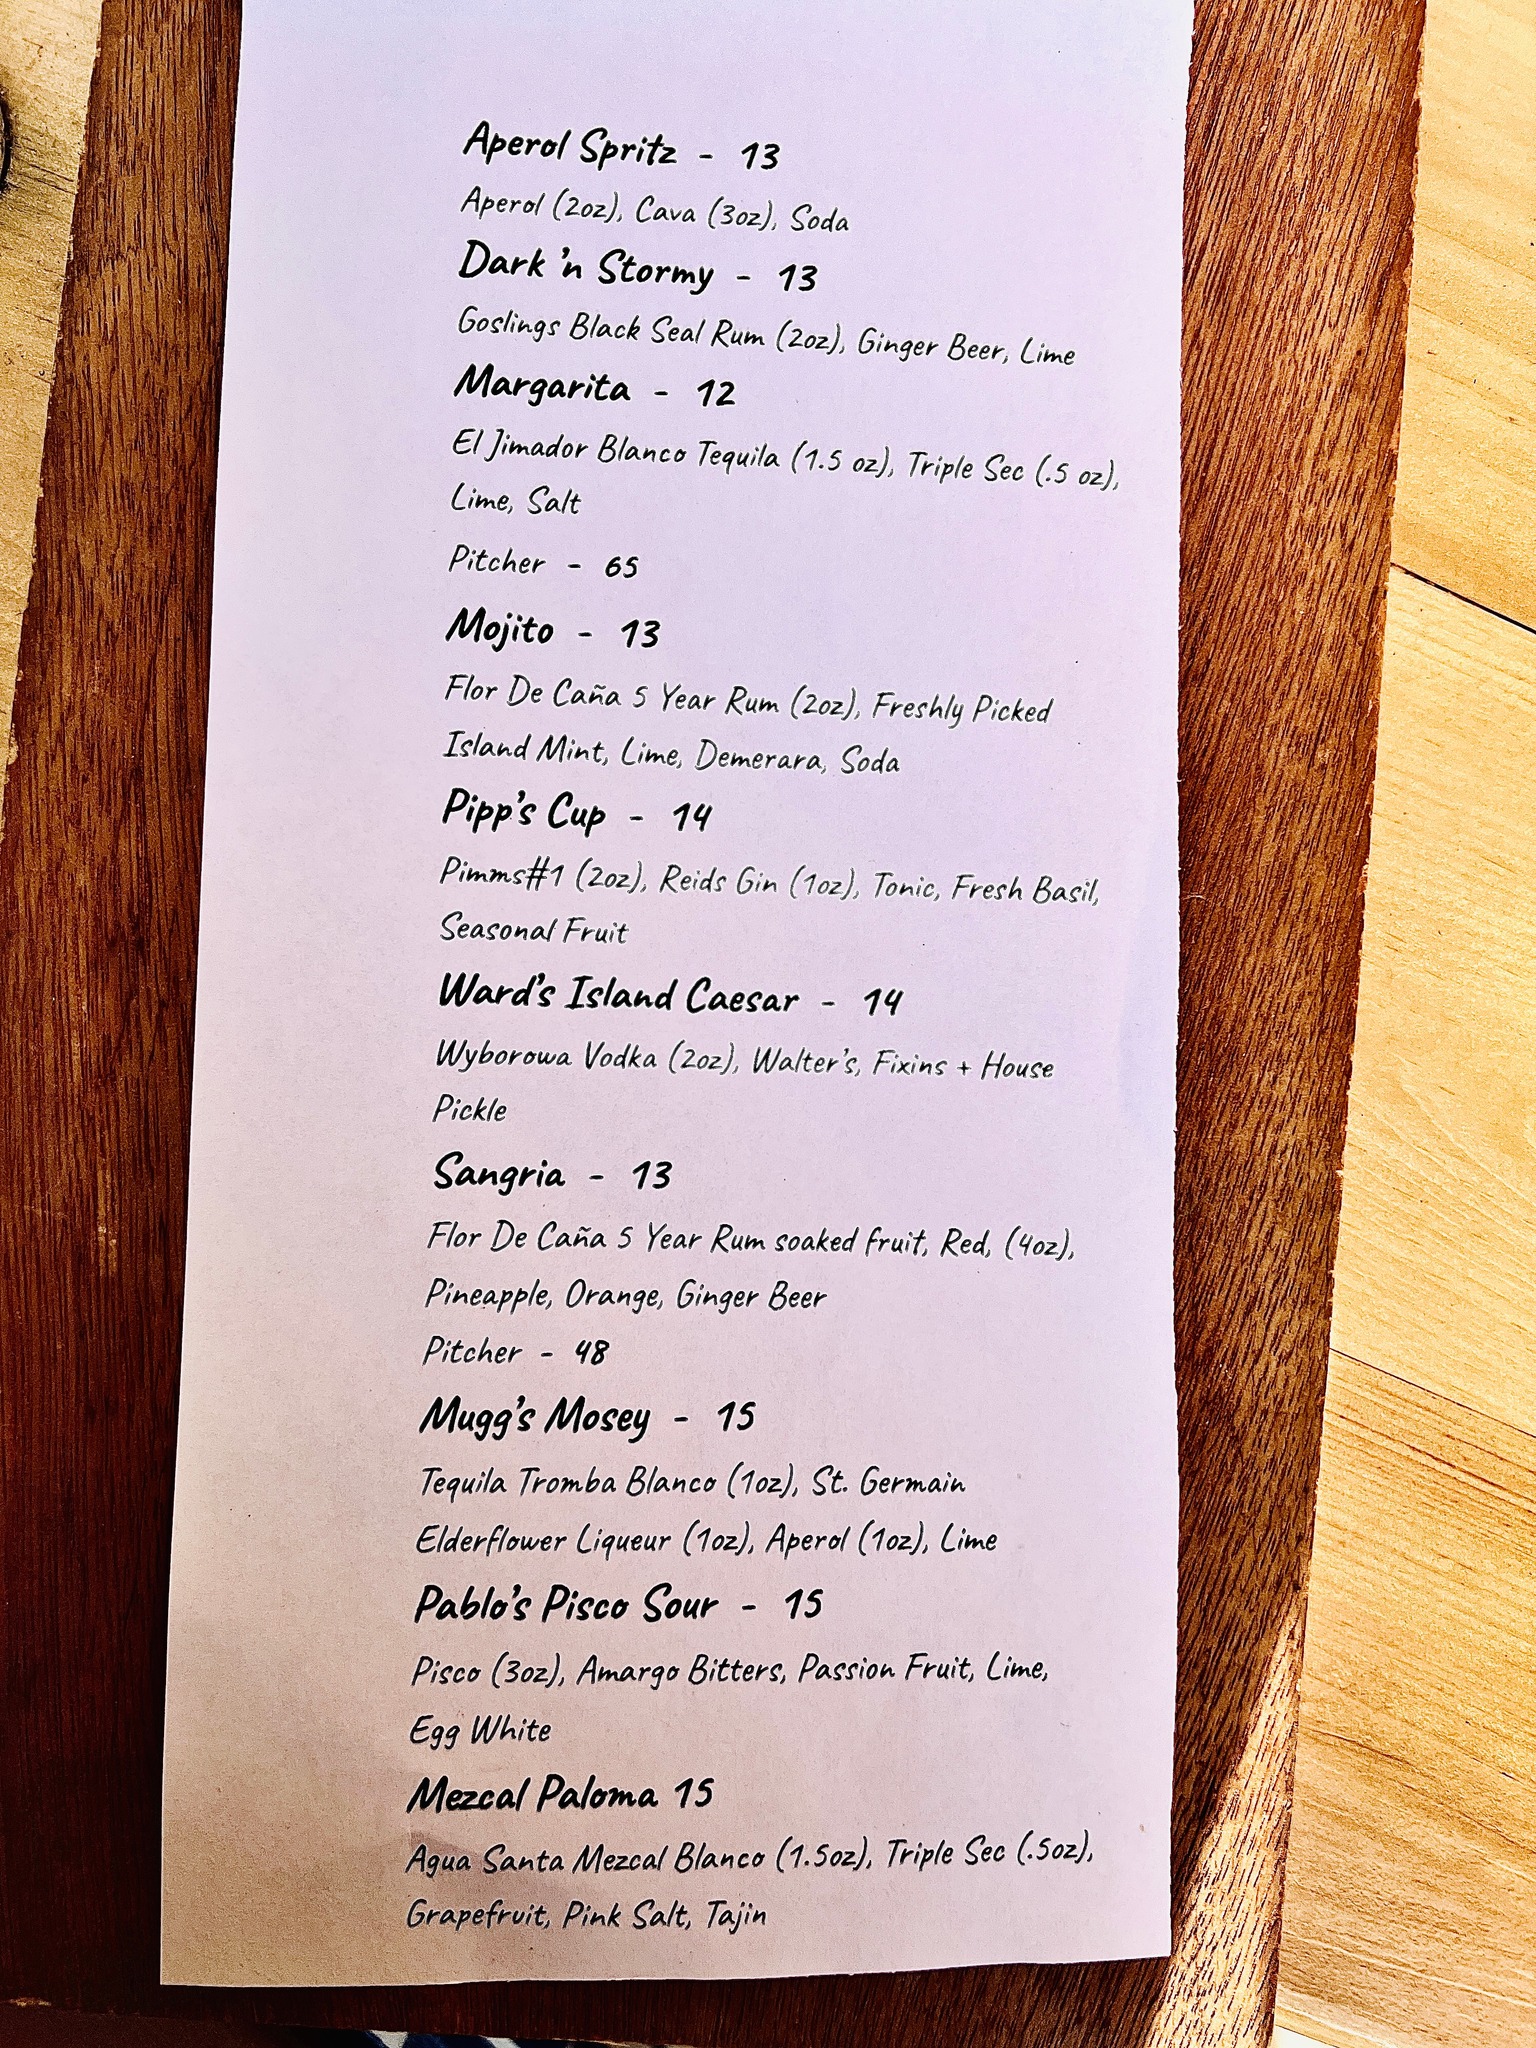 Aperol Spritz - 13
Aperol (2oz), Cava (3oz), Soda
Dark 'n Stormy - 13
Goslings Black Seal Rum (2oz), Ginger Beer, Lime
Margarita - 12
El Jimador Blanco Tequila (1.5 oz), Triple Sec (.5 oz),
Lime, Salt
Pitcher - 65
Mojito - 13
Flor De Caña 5 Year Rum (2oz), Freshly Picked
Island Mint, Lime, Demerara, Soda
Pipp's Cup - 14
Pimms#1 (2oz), Reids Gin (1oz), Tonic, Fresh Basil,
Seasonal Fruit
Ward's Island Caesar - 14
Wyborowa Vodka (2oz), Walter's, Fixins + House
Pickle
Sangria - 13
Flor De Caña 5 Year Rum soaked fruit, Red, (4oz),
Pineapple, Orange, Ginger Beer
Pitcher - 48
Mugg's Mosey - 15
Tequila Tromba Blanco (1oz), St. Germain
Elderflower Liqueur (1oz), Aperol (1oz), Lime
Pablo's Pisco Sour - 15
Pisco (3oz), Amargo Bitters, Passion Fruit, Lime,
Egg White
Mezcal Paloma 15
Agua Santa Mezcal Blanco (1.5oz), Triple Sec (.5oz),
Grapefruit, Pink Salt, Tajin